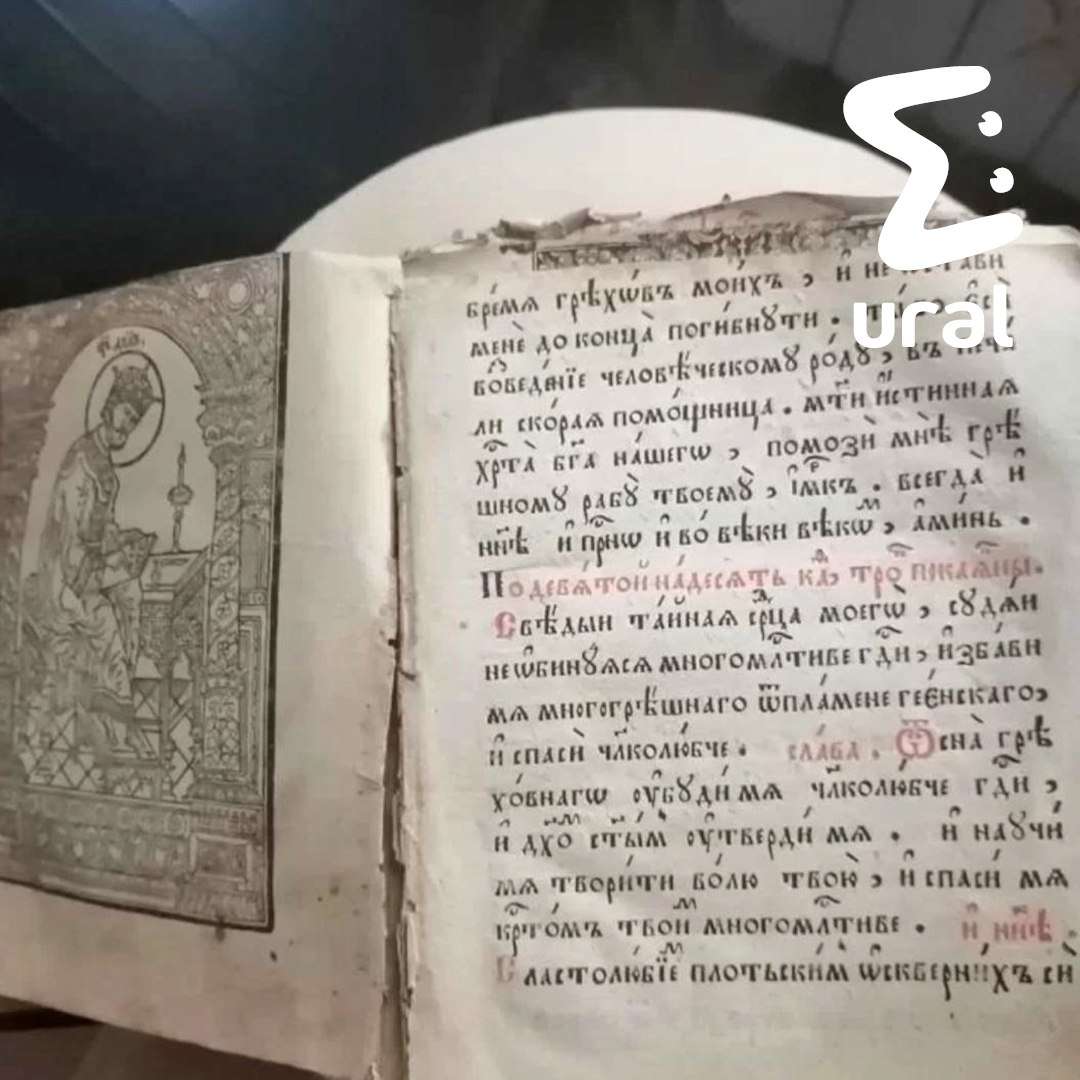 ural
бре́мѧ грѣхѡ́въ мои́хъ , и҆ не
менѐ до конца̀ поги́бнꙋти .
вѡведе́нїе человѣ́ческомꙋ ро́дꙋ , въ печа́
ли ско́раѧ помо́щница . мт҃и и҆́стиннаѧ
хрⷭ҇та̀ бг҃а на́шегѡ , помозѝ мнѣ̀ грѣ́
шномꙋ рабꙋ̀ твоемꙋ̀ , і҆́мⷬ҇къ . всегда̀ и҆
нн҃ѣ и҆ прⷭ҇нѡ и҆ во́ вѣки вѣкѡⷨ , а҆ми́нь .
По девѧ́той на́десѧть каⷴ҇ троⷫ҇ покаѧⷩ҇ны .
Свѣ́дый та́йнаѧ срⷣца моегѡ̀ , сꙋдѧ́и
не ѡ҆бинꙋ́ѧсѧ многомлⷭ҇тиве гдⷭ҇и , и҆збави
мѧ многогрѣ́шнаго ѿ пла́мене гее́нскаго ,
и҆ спасѝ чл҃колю́бче . сла́ва . Ѿ сна̀ грѣ
хо́внагѡ ᲂу҆бꙋди́ мѧ чл҃колю́бче гдⷭ҇и ,
и҆ дх҃оⷨ ст҃ымъ ᲂу҆тверди́ мѧ . и҆ наꙋчи́
мѧ твори́ти во́лю твою̀ , и҆ спаси́ мѧ
крⷭ҇то́мъ твоиⷨ многомлⷭ҇тиве . и҆ нн҃ѣ .
Сластолю́бїеⷨ пло́тьскимъ ѡ҆скверни́хъ си